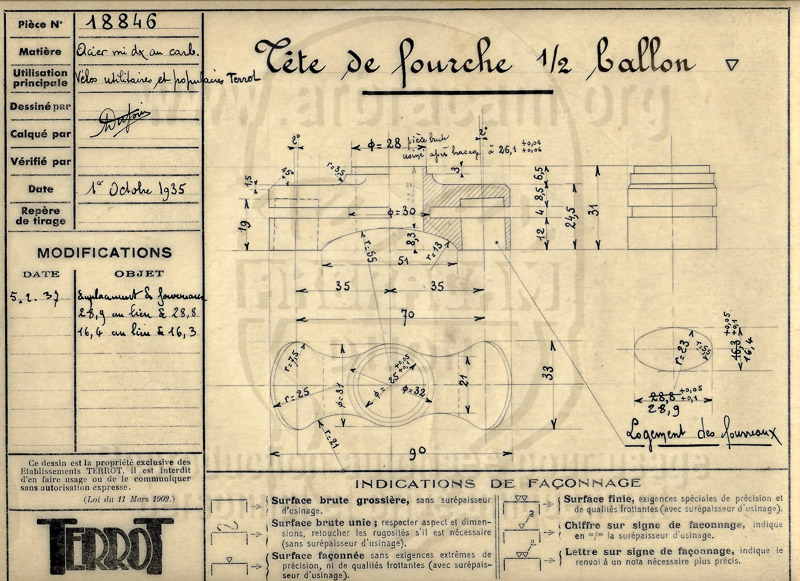 Pièce N° 18846
Matière Acier mi dx au carb.
Utilisation principale Vélos utilitaires et populaires Terrot
Dessiné par
Calqué par
Vérifié par
Date 1er Octobre 1935
Repère de tirage
MODIFICATIONS
DATE OBJET
5.2.37 Emplacement des fourreaux
28,9 au lieu de 28,8
16,4 au lieu de 16,3
Ce dessin est la propriété exclusive des
Etablissements TERROT. il est interdit
d'en faire usage ou de le communiquer
sans autorisation expresse.
(Loi du 11 Mars 1902.)
TERROT
Tête de fourche 1/2 ballon
2°
ϕ = 28 pièce brute
usiné après brasage à 26,1 +0,04 +0,06
2°
1,5
r=3,5
3
6,5
8,5
4
12
24,5
31
19
ϕ=30
8,3
r=55
r=13
51
35
35
70
r=7,5
r=25
ϕ=31
ϕ=25
ϕ=32
r=21
21
33
90
r=23
16,3 +0,05 +0,1
16,4
28,8 +0,05 +0,1
28,9
Logement des fourreaux
INDICATIONS DE FAÇONNAGE
Surface brute grossière, sans surépaisseur
d'usinage.
Surface brute unie ; respecter aspect et dimen-
sions, retoucher les rugosités s'il est nécessaire
(sans surépaisseur d'usinage).
Surface façonnée sans exigences extrêmes de
précision, ni de qualités frottantes (avec surépais-
seur d'usinage).
Surface finie, exigences spéciales de précision et
de qualités frottantes (avec surépaisseur d'usinage).
3
Chiffre sur signe de façonnage, indique
en m/m la surépaisseur d'usinage.
a
Lettre sur signe de façonnage, indique le
renvoi à un nota nécessaire plus précis.